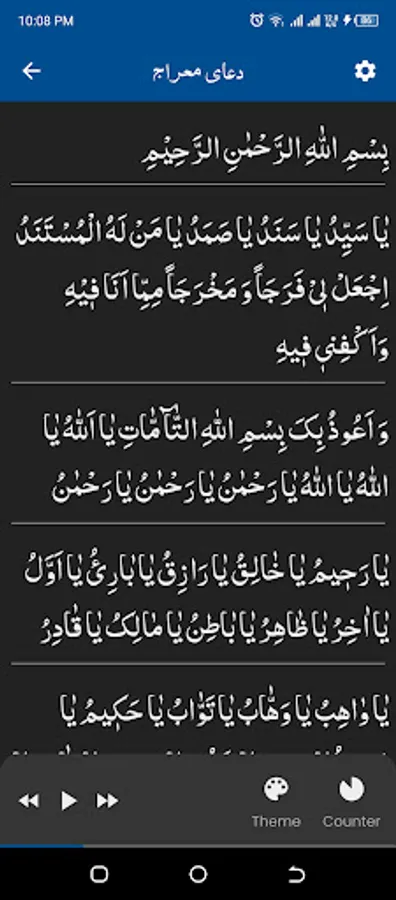 10:08 PM
دعای معراج
بِسْمِ اللّٰهِ الرَّحْمٰنِ الرَّحِیْمِ
یٰا سَیِّدُ یٰا سَنَدُ یٰا صَمَدُ یٰا مَنْ لَهُ الْمُسْتَنَدُ
اِجْعَلْ لِیْ فَرَجَاً وَ مَخْرَجَاً مِمّٰا اَنَا فِیْهِ
وَ اَكْفِنِیْ فِیهِ
وَ اَعُوذُ بِکَ بِسْمِ اللّٰهِ التّٰآمّٰاتِ یٰا اَللّٰهُ یٰا
اللّٰهُ یٰا اللّٰهُ یٰا رَحْمٰنُ یٰا رَحْمٰنُ یٰا رَحْمٰنُ
یٰا رَحِیمُ یٰا خٰالِقُ یٰا رَازِقُ یٰا بٰارِئُ یٰا اَوَّلُ
یٰا اٰخِرُ یٰا ظٰاهِرُ یٰا بٰاطِنُ یٰا مٰالِکُ یٰا قٰادِرُ
یٰا وٰاهِبُ یٰا وَهّٰابُ یٰا تَوّٰابُ یٰا حَکِیمُ یٰا
Theme Counter